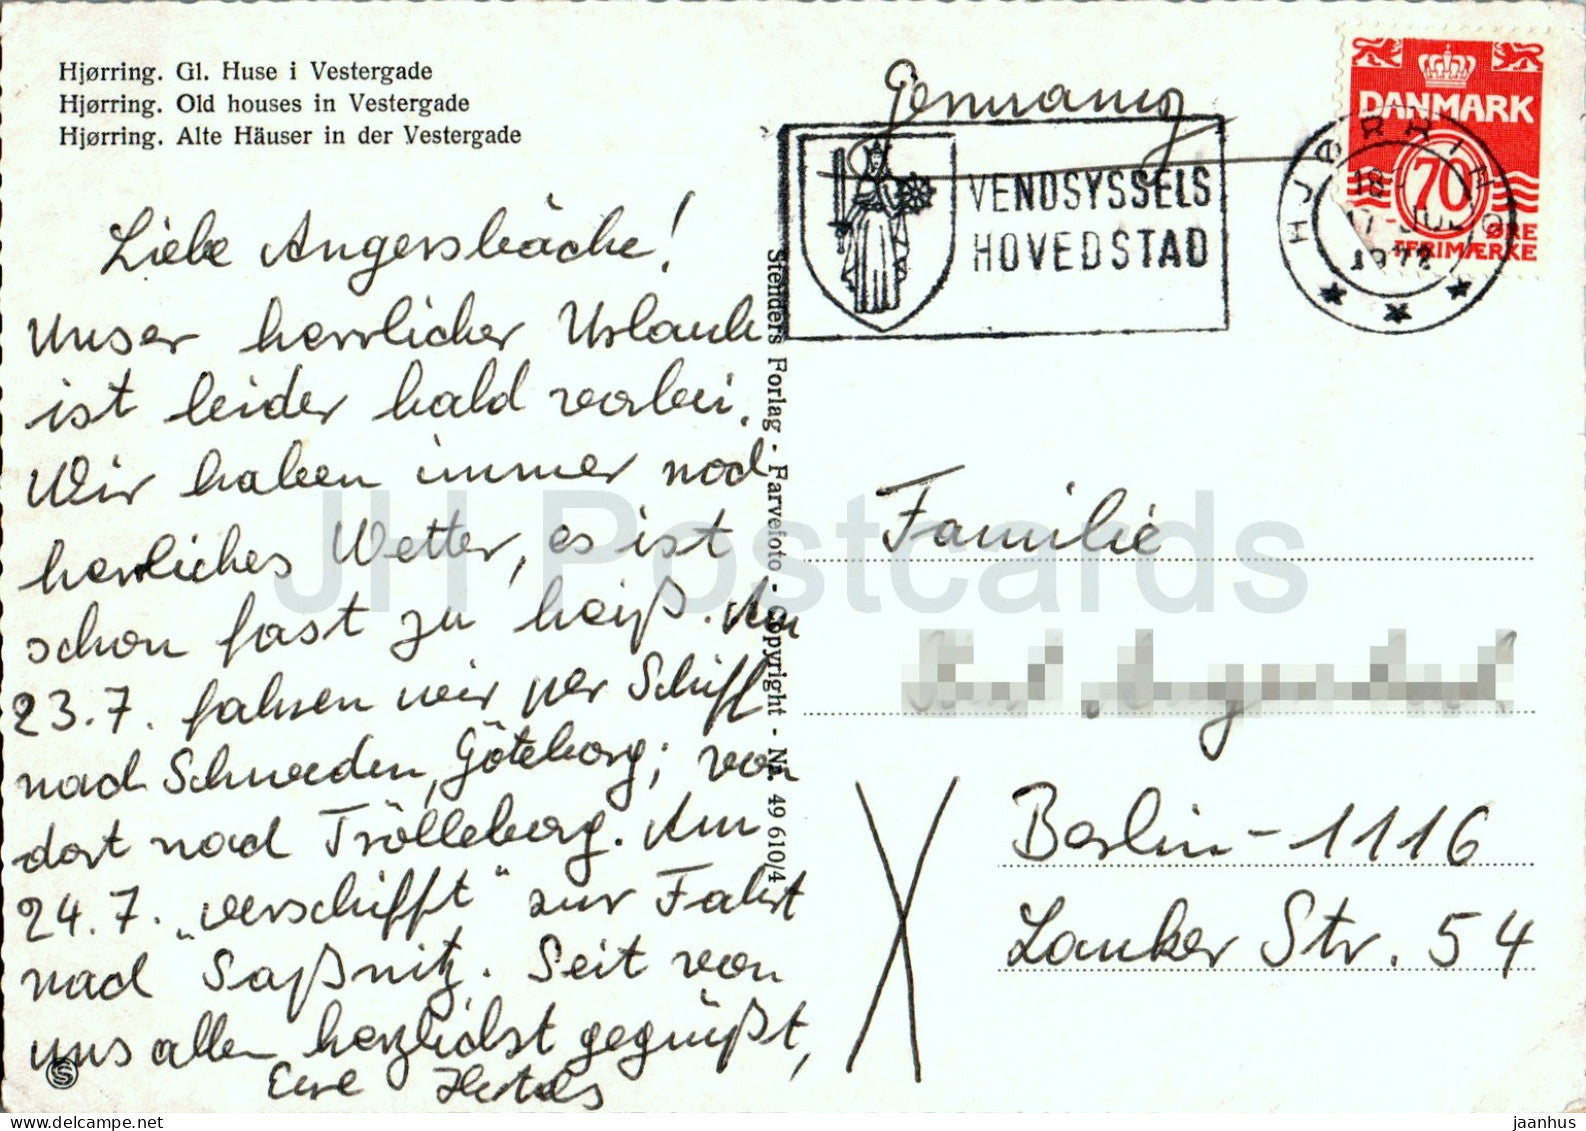 Hjørring. Gl. Huse i Vestergade
Hjørring. Old houses in Vestergade
Hjørring. Alte Häuser in der Vestergade
Liebe Angersbäche!
Unser herrlicher Urlaub
ist leider bald vorbei.
Wir haben immer noch
herrliches Wetter, es ist
schon fast zu heiß. Am
23.7. fahren wir per Schiff
nach Schweden, Göteborg; von
dort nach Trölleborg. Am
24.7. „verschifft“ zur Fahrt
nach Saßnitz. Seit von
uns allen herzlichst gegrüßt,
Eure
Stenders Forlag - Farvefoto - Copyright - Na. 49 610/4
Germany
VENDSYSSELS
HOVEDSTAD
HJØRRING
DANMARK
70
ØRE
FRIMÆRKE
Familie
Berlin-1116
Lanker Str. 54
JH Postcards
jaanhus